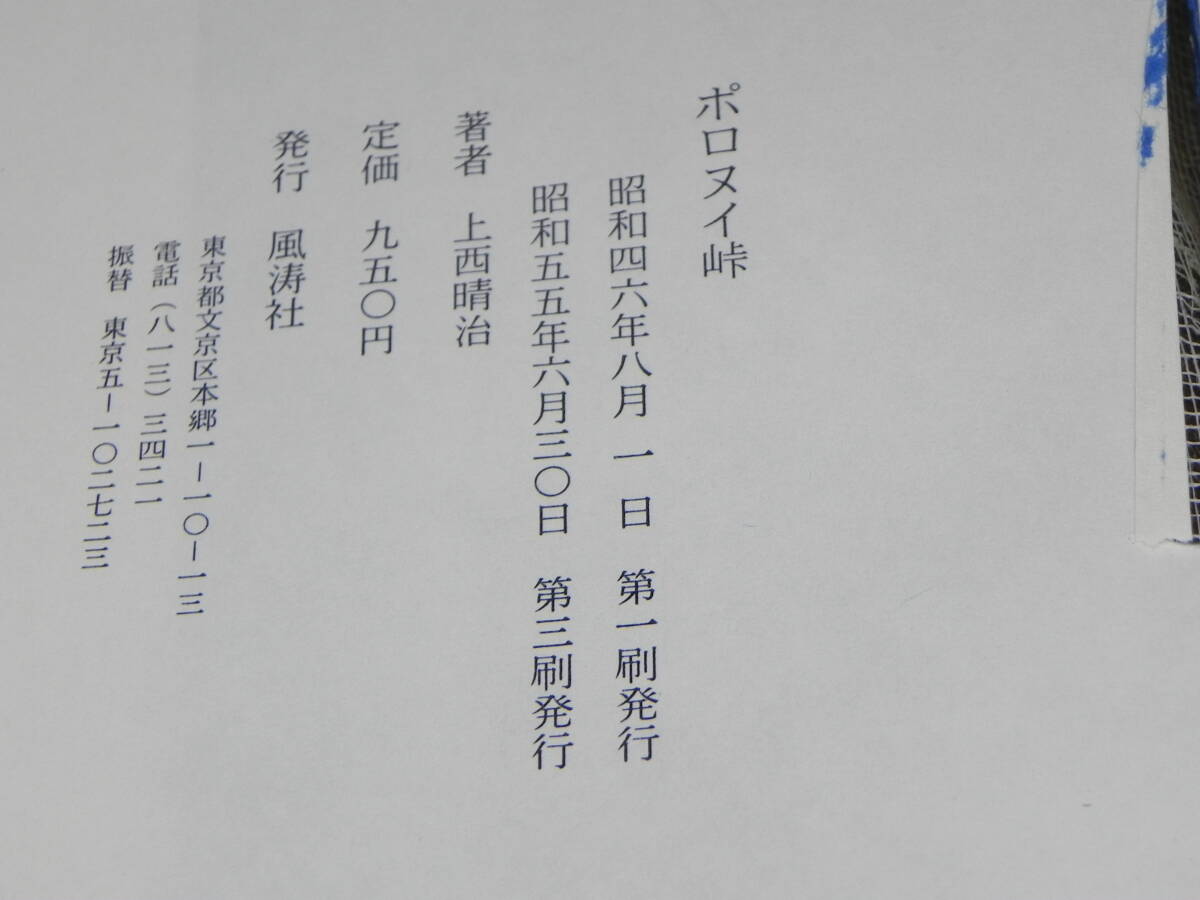 ポロヌイ峠
昭和四六年八月 一 日 第一刷発行
昭和五五年六月三〇日 第三刷発行
著者 上西晴治
定価 九五〇円
発行 風涛社
東京都文京区本郷一-一〇-一三
電話(八一三)三四二一
振替 東京五-一〇二七二三